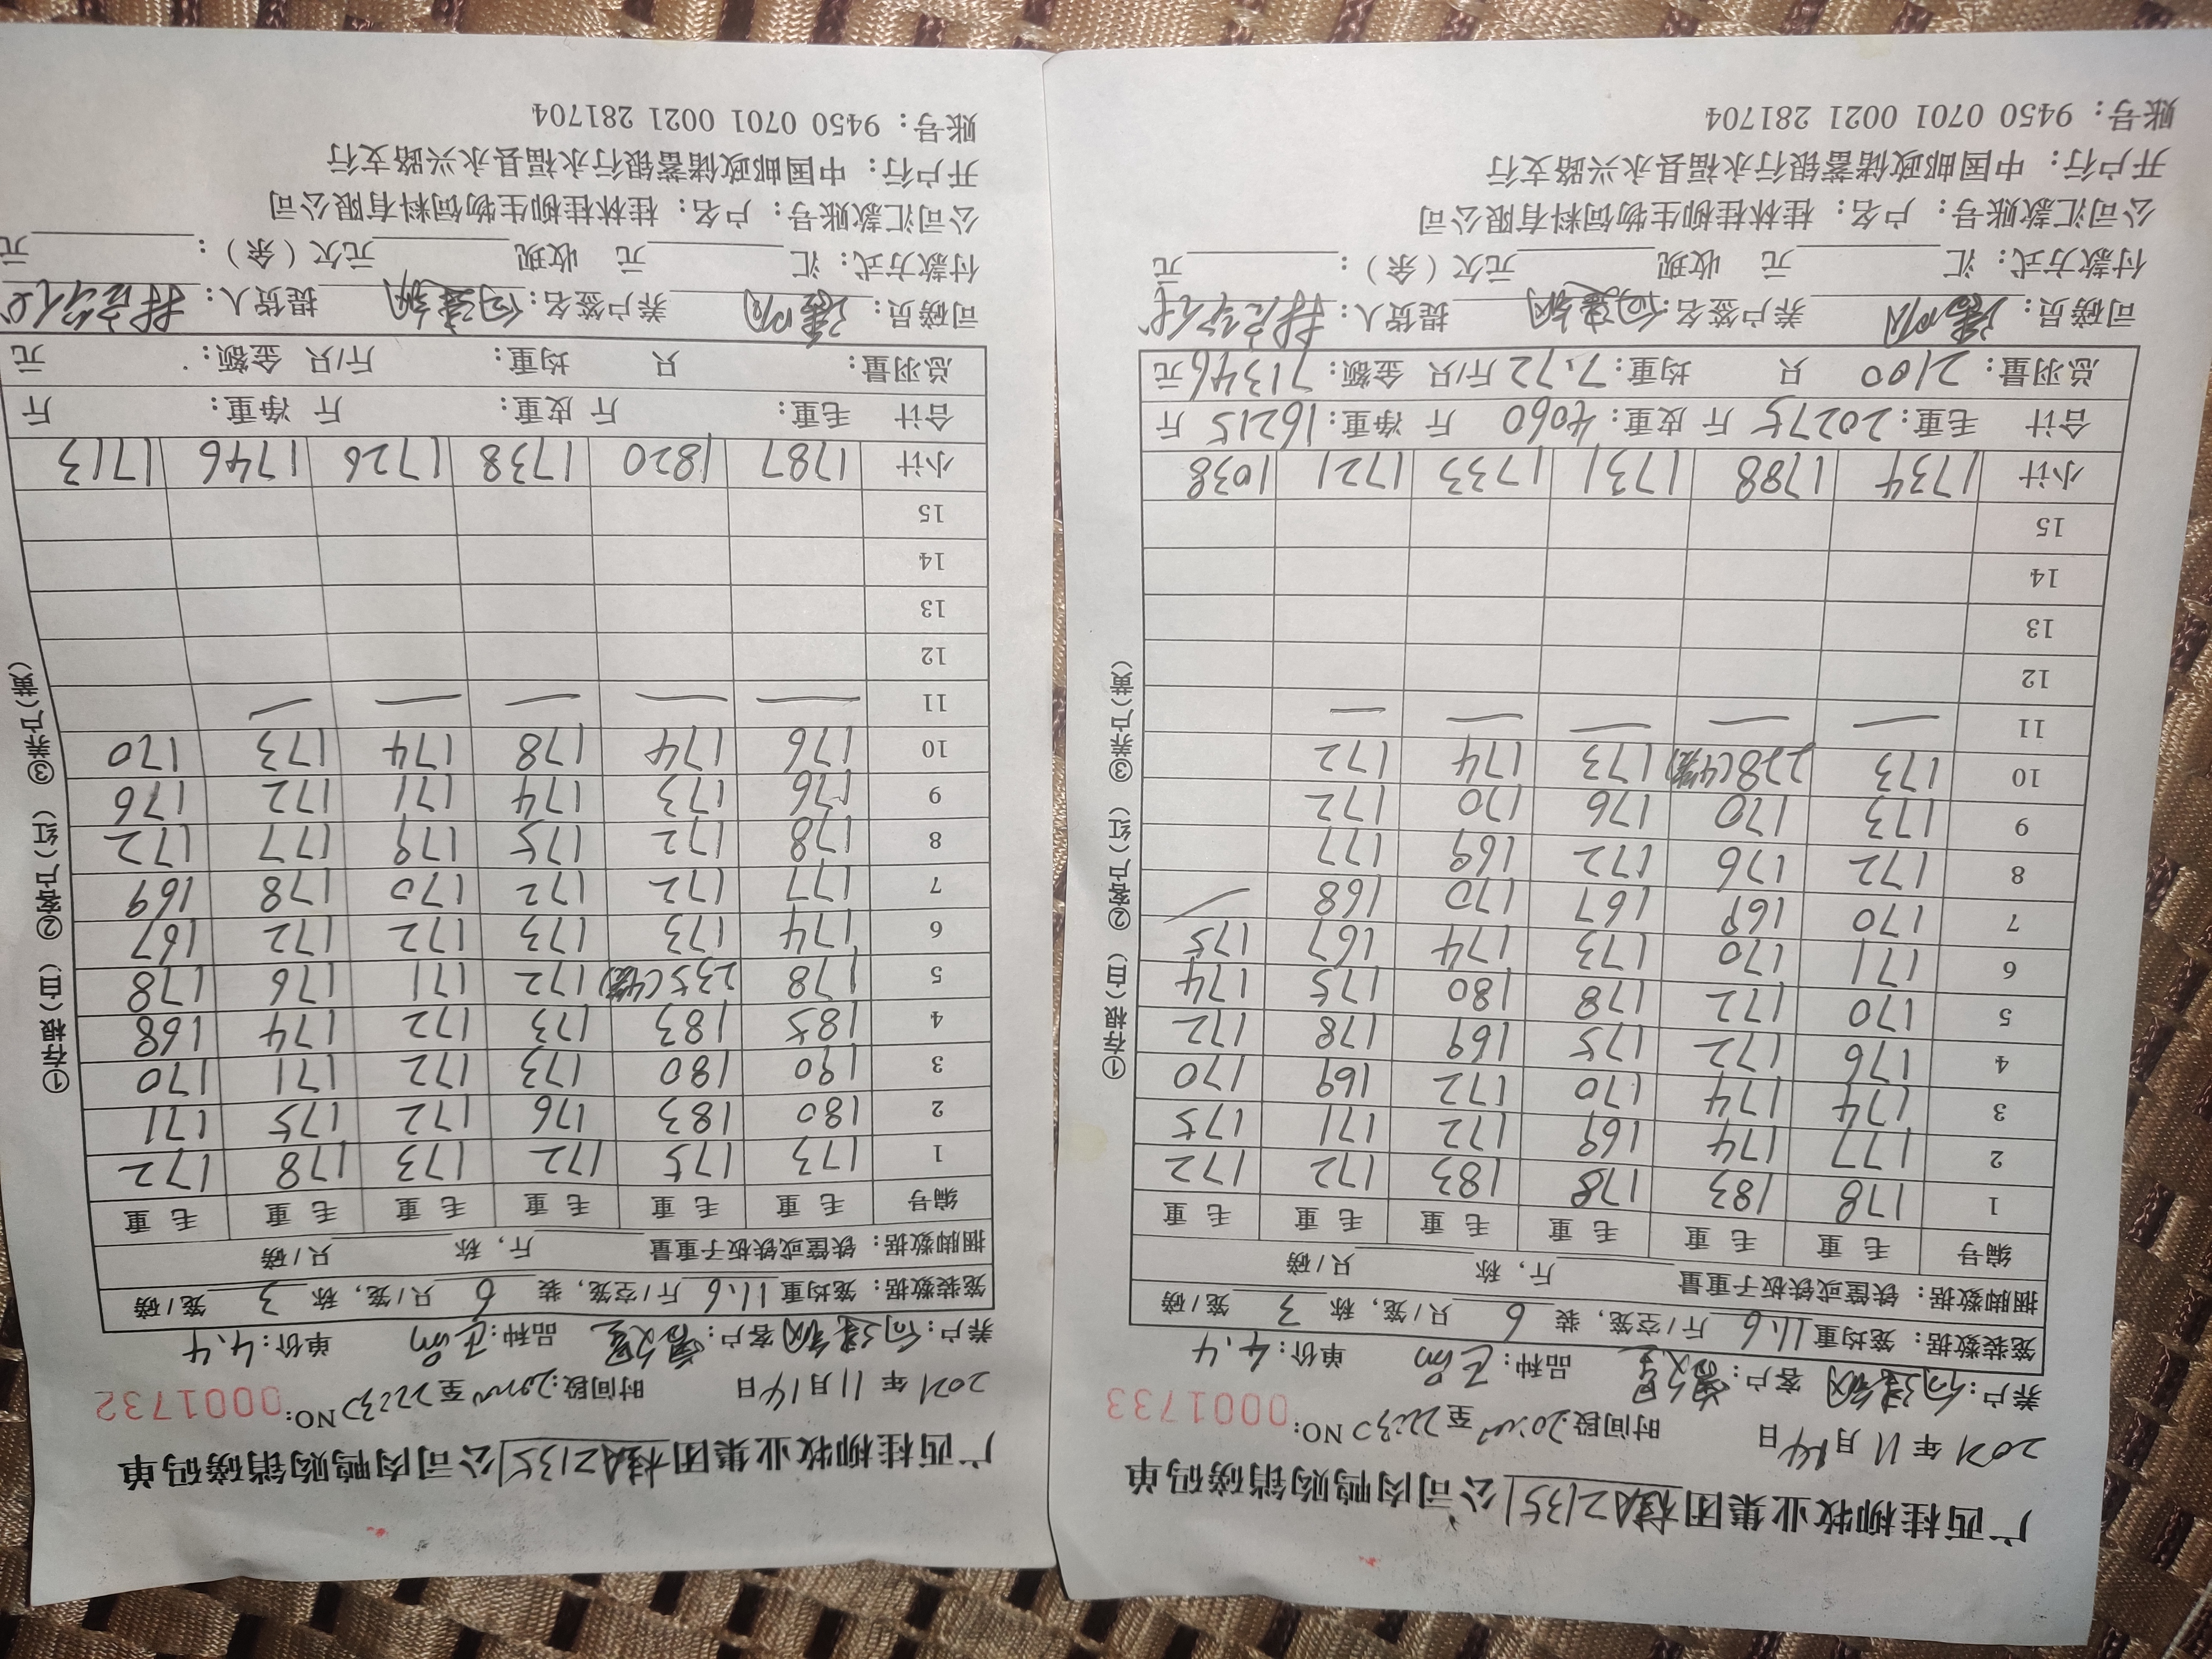 广西桂柳牧业集团 桂A2135 公司肉鸭购销磅码单
2021 年 11 月 14 日 时间段: 至 22:30 NO: 0001733
养户: 客户: 品种: 单价: 4.4
笼装数据: 笼均重 11.6 斤/空笼, 装 6 只/笼, 称 3 笼/磅
捆脚数据: 铁筐或铁板子重量 斤, 称 只/磅
编号 毛 重 毛 重 毛 重 毛 重 毛 重 毛 重
1 178 183 178 183 172 172
2 177 174 169 172 171 175
3 174 174 170 172 169 170
4 176 172 175 169 178 172
5 170 172 178 180 175 174
6 171 170 173 174 167 175
7 170 169 167 170 168
8 172 176 172 169 177
9 173 170 176 170 172
10 173 228(4笼) 173 174 172
11 — — — — —
12
13
14
15
小计 1734 1788 1731 1733 1721 1038
合计 毛重: 20275 斤 皮重: 4060 斤 净重: 16215 斤
总羽量: 2100 只 均重: 7.72 斤/只 金额: 71346 元
司磅员: 养户签名: 提货人:
付款方式: 汇 元 收现 元欠(余): 元
公司汇款账号: 户名: 桂林桂柳生物饲料有限公司
开户行: 中国邮政储蓄银行永福县永兴路支行
账号: 9450 0701 0021 281704
①存根(白) ②客户(红) ③养户(黄)
广西桂柳牧业集团 桂A2135 公司肉鸭购销磅码单
2021 年 11 月 14 日 时间段: 至 22:30 NO: 0001732
养户: 客户: 品种: 单价: 4.4
笼装数据: 笼均重 11.6 斤/空笼, 装 6 只/笼, 称 3 笼/磅
捆脚数据: 铁筐或铁板子重量 斤, 称 只/磅
编号 毛 重 毛 重 毛 重 毛 重 毛 重 毛 重
1 173 175 172 173 178 172
2 180 183 176 172 175 171
3 190 180 173 172 171 170
4 185 183 173 172 174 168
5 178 235(4笼) 172 171 176 178
6 174 173 173 172 172 167
7 177 172 172 170 178 169
8 178 172 175 179 177 172
9 176 173 174 171 172 176
10 176 174 178 174 173 170
11 — — — — —
12
13
14
15
小计 1787 1820 1738 1726 1746 1713
合计 毛重: 斤 皮重: 斤 净重: 斤
总羽量: 只 均重: 斤/只 金额: 元
司磅员: 养户签名: 提货人:
付款方式: 汇 元 收现 元欠(余): 元
公司汇款账号: 户名: 桂林桂柳生物饲料有限公司
开户行: 中国邮政储蓄银行永福县永兴路支行
账号: 9450 0701 0021 281704
①存根(白) ②客户(红) ③养户(黄)